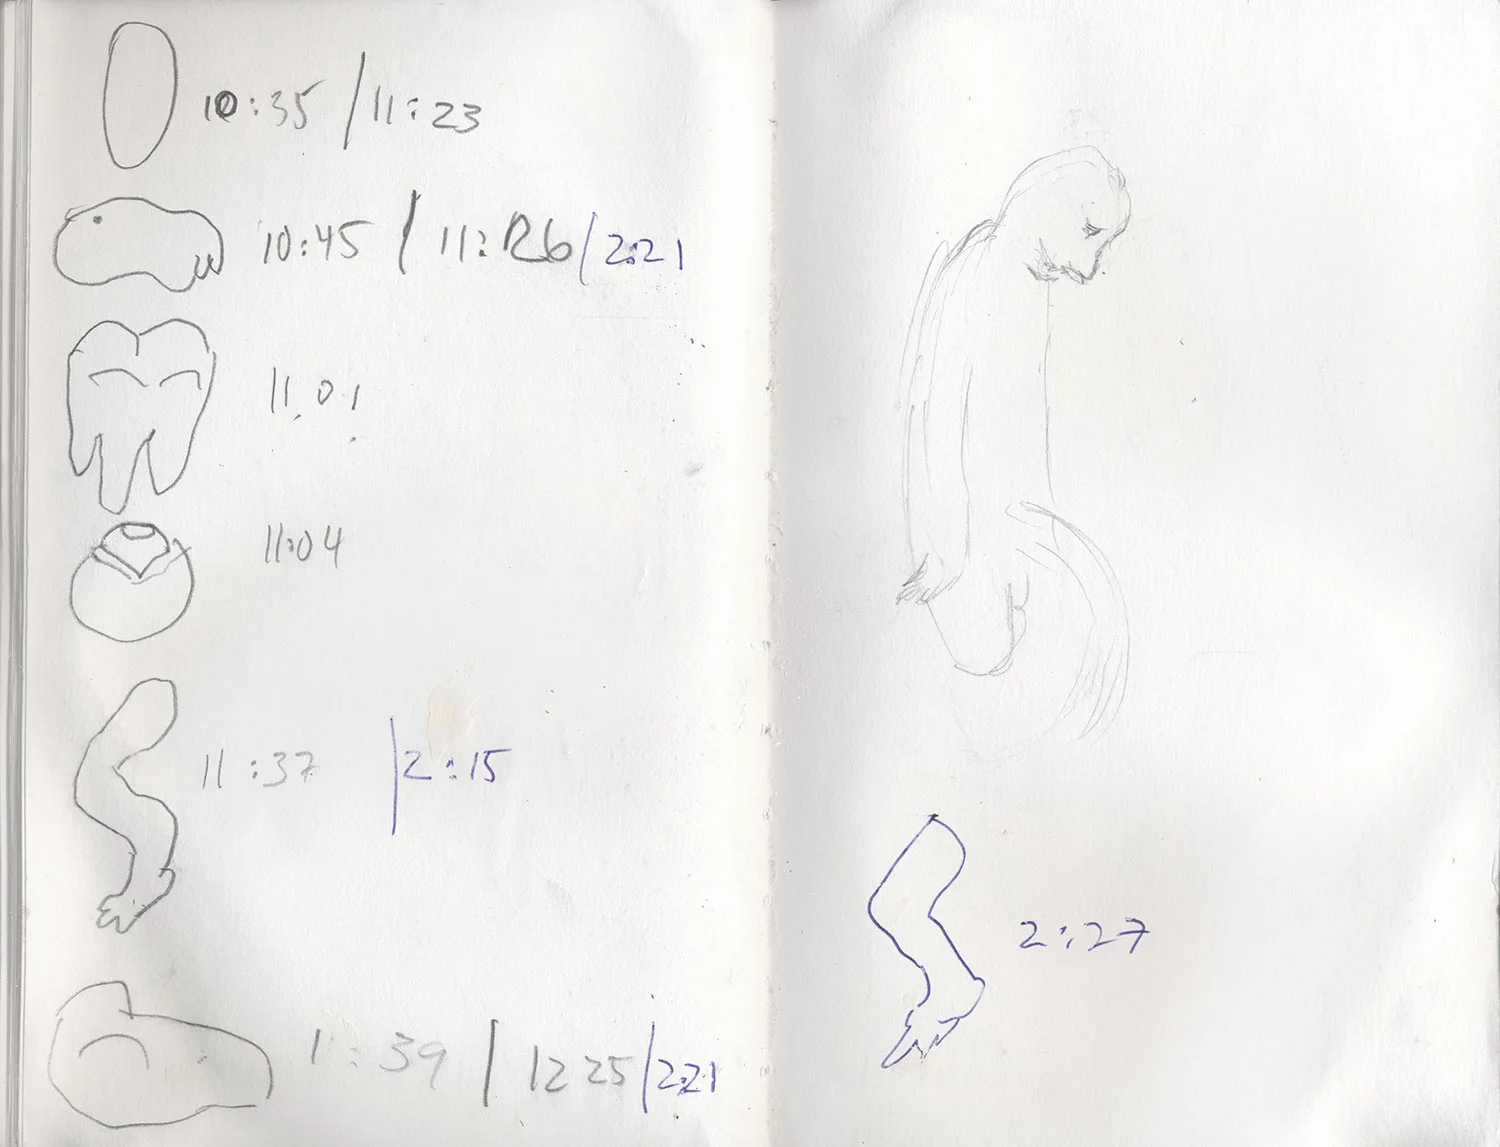 10:35 / 11:23
10:45 / 11:26 / 2:21
11.01
11:04
11:37 | 2:15
11:39 | 12 25 | 2:21
2:27